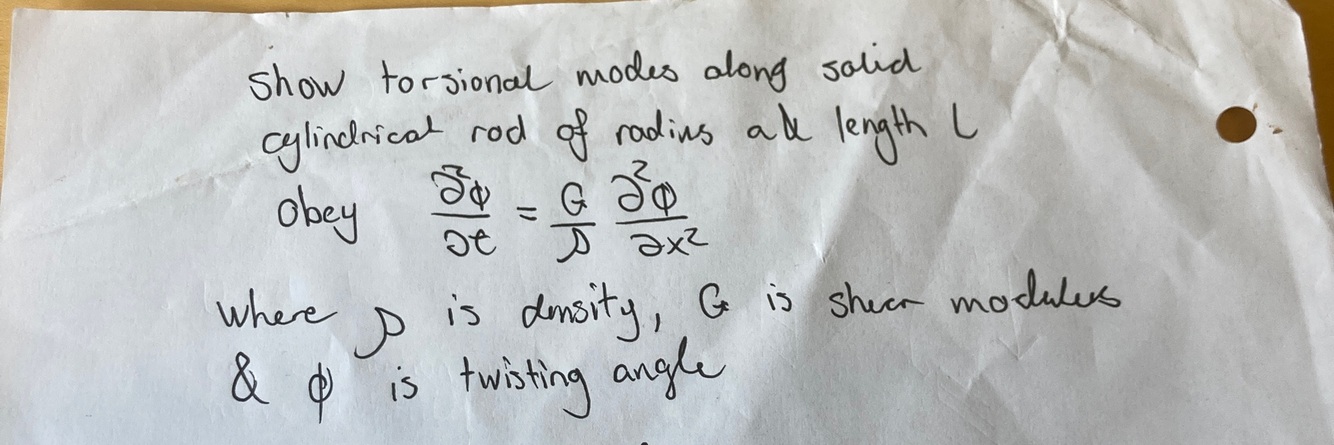 Show torsional modes along solid
cylindrical rod of radius a & length L
Obey ∂²φ/∂t = G/ρ ∂²φ/∂x²
where ρ is density, G is shear modulus
& φ is twisting angle